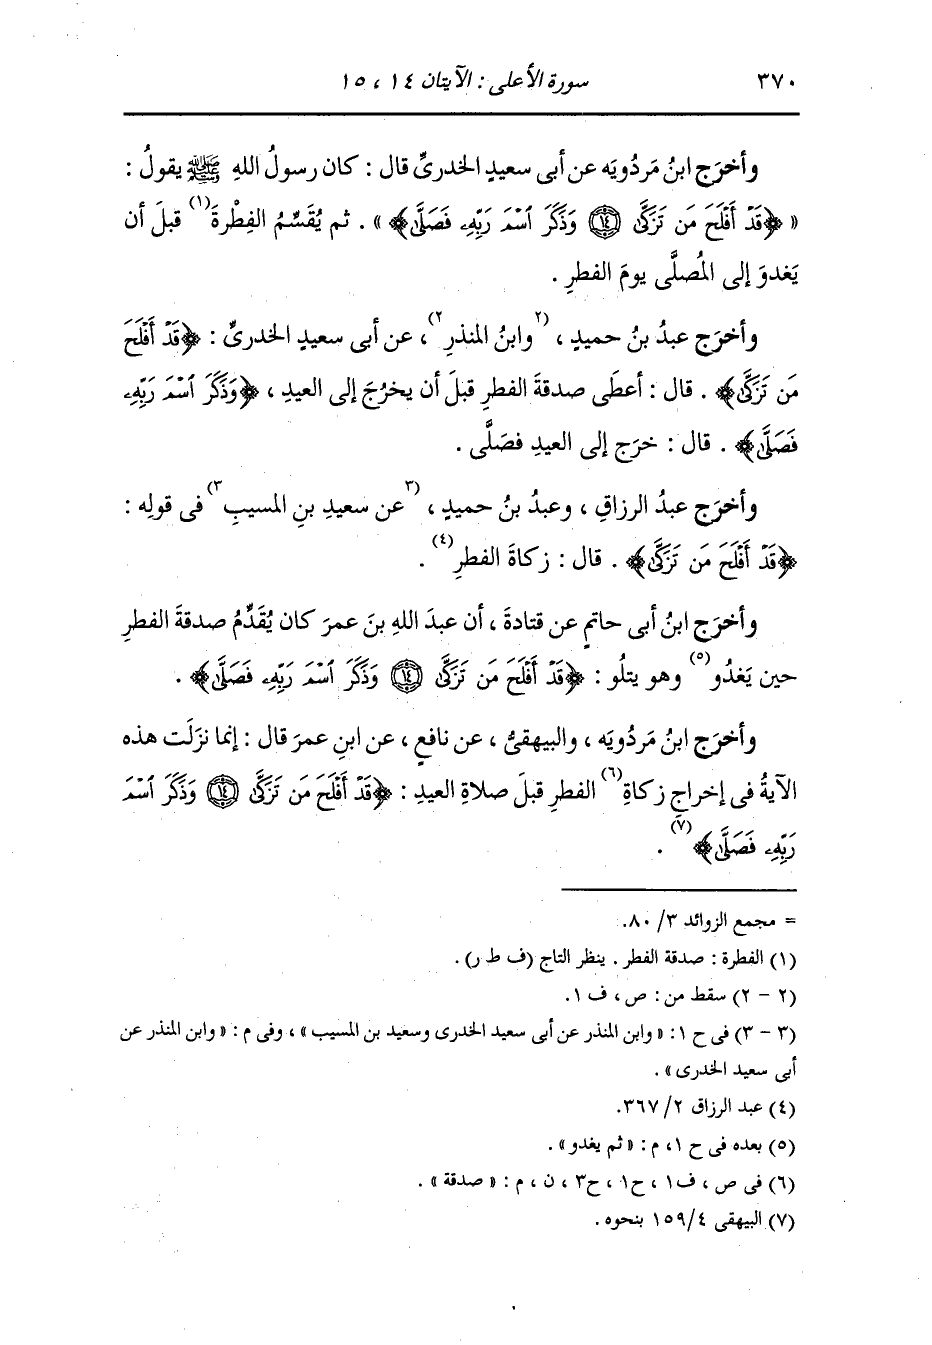 ٣٧٠ سورة الأعلى : الآيتان ١٤ ، ١٥
وأخرَج ابنُ مَردُويَه عن أبى سعيدٍ الخدرىِّ قال : كان رسولُ اللهِ ﷺ يقولُ :
« ﴿قَدْ أَفْلَحَ مَن تَزَكَّىٰ ﴿١٤﴾ وَذَكَرَ ٱسْمَ رَبِّهِۦ فَصَلَّىٰ﴾ » . ثم يُقَسِّمُ الفِطْرةَ(١) قبلَ أن
يَغدوَ إلى المُصلَّى يومَ الفطرِ .
وأخرَج عبدُ بنُ حميدٍ ، (٢) وابنُ المنذرِ ٢) ، عن أبى سعيدٍ الخدرىِّ : ﴿قَدْ أَفْلَحَ
مَن تَزَكَّىٰ﴾ . قال : أعطَى صدقةَ الفطرِ قبلَ أن يخرُجَ إلى العيدِ ، ﴿وَذَكَرَ ٱسْمَ رَبِّهِۦ
فَصَلَّىٰ﴾ . قال : خرَج إلى العيدِ فصَلَّى .
وأخرَج عبدُ الرزاقِ ، وعبدُ بنُ حميدٍ ، (٣) عن سعيدِ بنِ المسيبِ ٣) فى قولِه :
﴿قَدْ أَفْلَحَ مَن تَزَكَّىٰ﴾ . قال : زكاةَ الفطرِ(٤) .
وأخرَج ابنُ أبى حاتمٍ عن قتادةَ ، أن عبدَ اللهِ بنَ عمرَ كان يُقَدِّمُ صدقةَ الفطرِ
حين يَغدُو(٥) وهو يتلُو : ﴿قَدْ أَفْلَحَ مَن تَزَكَّىٰ ﴿١٤﴾ وَذَكَرَ ٱسْمَ رَبِّهِۦ فَصَلَّىٰ﴾ .
وأخرَج ابنُ مَردُويَه ، والبيهقىُّ ، عن نافعٍ ، عن ابنِ عمرَ قال : إنما نزَلَت هذه
الآيةُ فى إخراجِ زكاةِ(٦) الفطرِ قبلَ صلاةِ العيدِ : ﴿قَدْ أَفْلَحَ مَن تَزَكَّىٰ ﴿١٤﴾ وَذَكَرَ ٱسْمَ
رَبِّهِۦ فَصَلَّىٰ﴾(٧) .
= مجمع الزوائد ٣/ ٨٠.
(١) الفطرة : صدقة الفطر . ينظر التاج (ف ط ر) .
(٢ - ٢) سقط من : ص ، ف ١.
(٣ - ٣) فى ح ١: « وابن المنذر عن أبى سعيد الخدرى وسعيد بن المسيب » ، وفى م : « وابن المنذر عن
أبى سعيد الخدرى » .
(٤) عبد الرزاق ٢/ ٣٦٧.
(٥) بعده فى ح ١، م : « ثم يغدو » .
(٦) فى ص ، ف١ ، ح١ ، ح٣ ، ن ، م : « صدقة » .
(٧) البيهقى ٤/ ١٥٩ بنحوه .